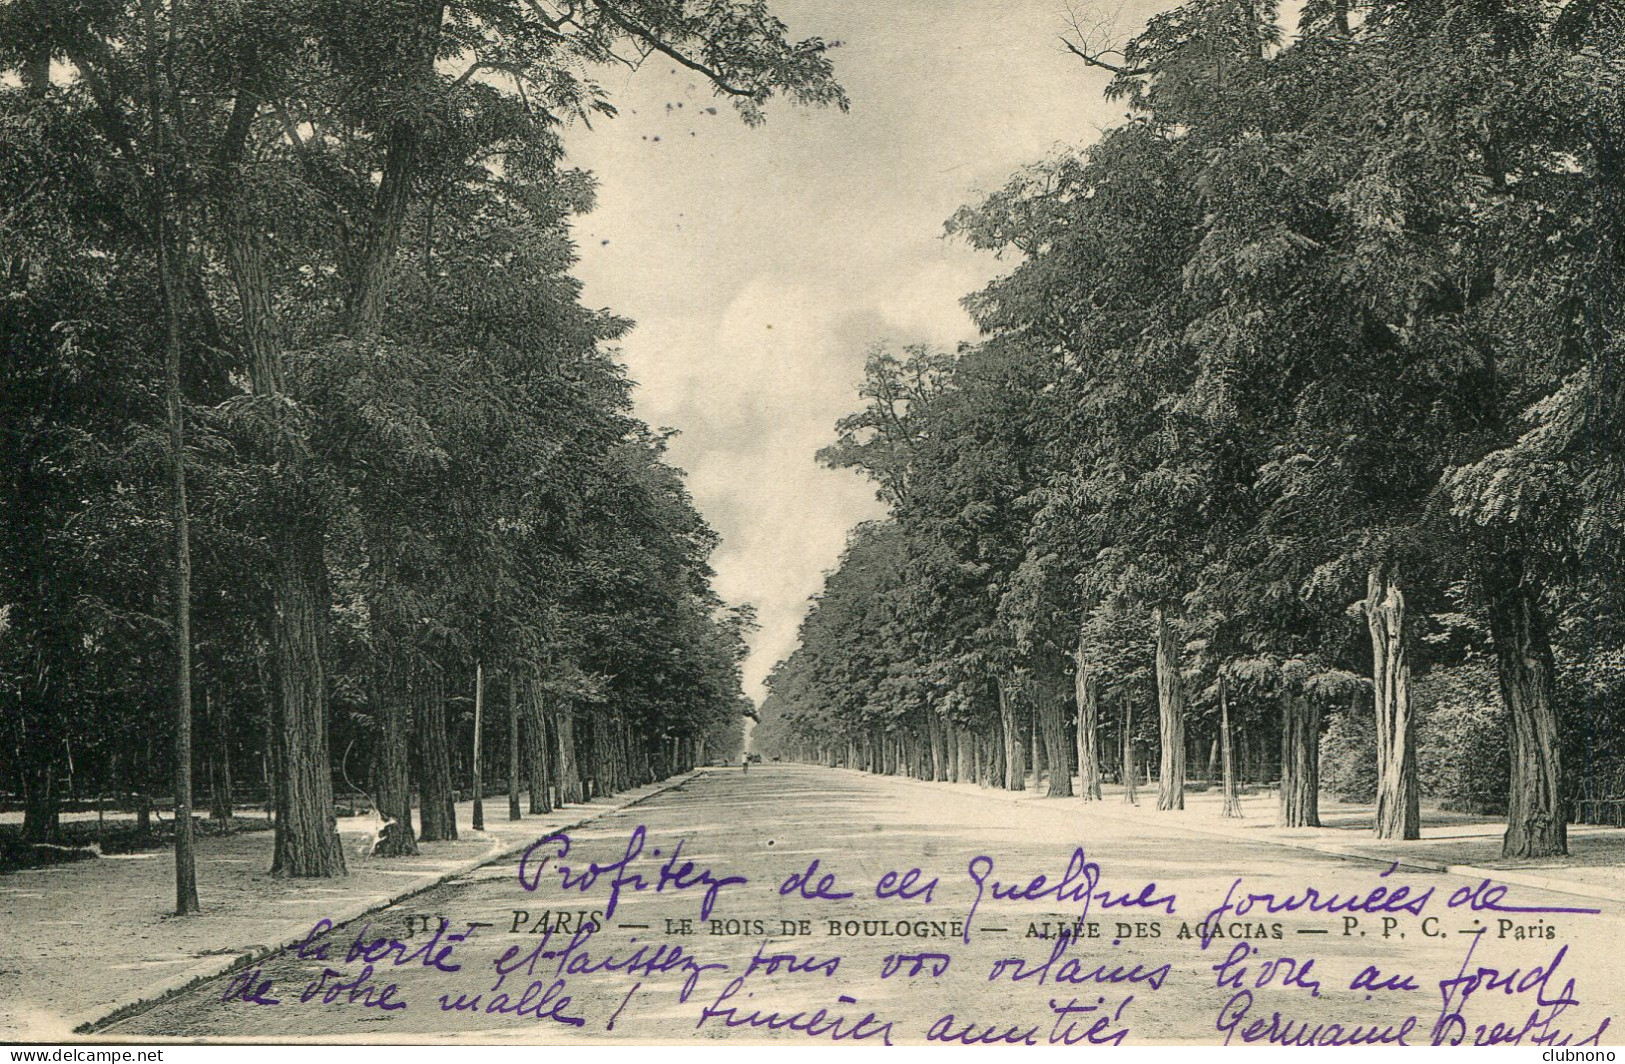 Profitez de ces quelques journées de
311 — PARIS — LE BOIS DE BOULOGNE — ALLÉE DES ACACIAS — P. P. C. — Paris
liberté et laissez tous vos vilains livres au fond,
de votre malle ! Sincères amitiés Germaine Dreyfus
clubnono